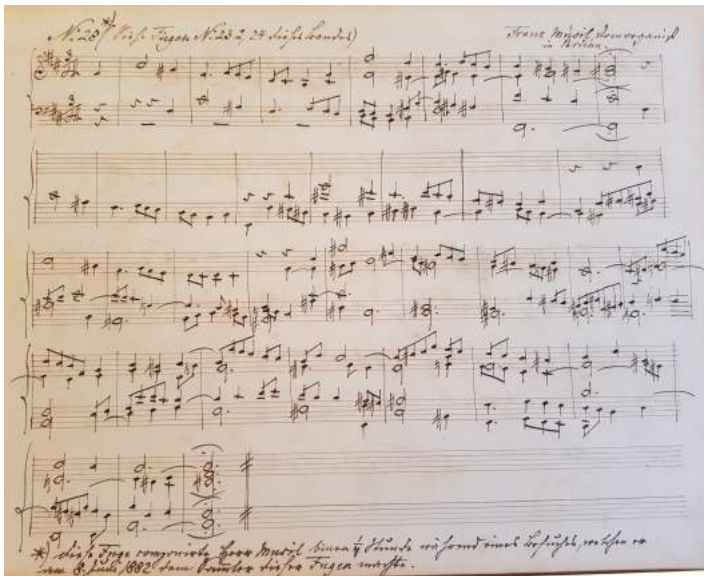 N: 28 *) (Siehe Fugen N: 23 u. 24 dieses Bandes)
Franz Musil, Domorganist
in
*) Diese Fuge componirte Herr Musil binnen ½ Stunde während eines Besuches, welchen er
am 8. Juli 1882 dem dieser Fugen machte.